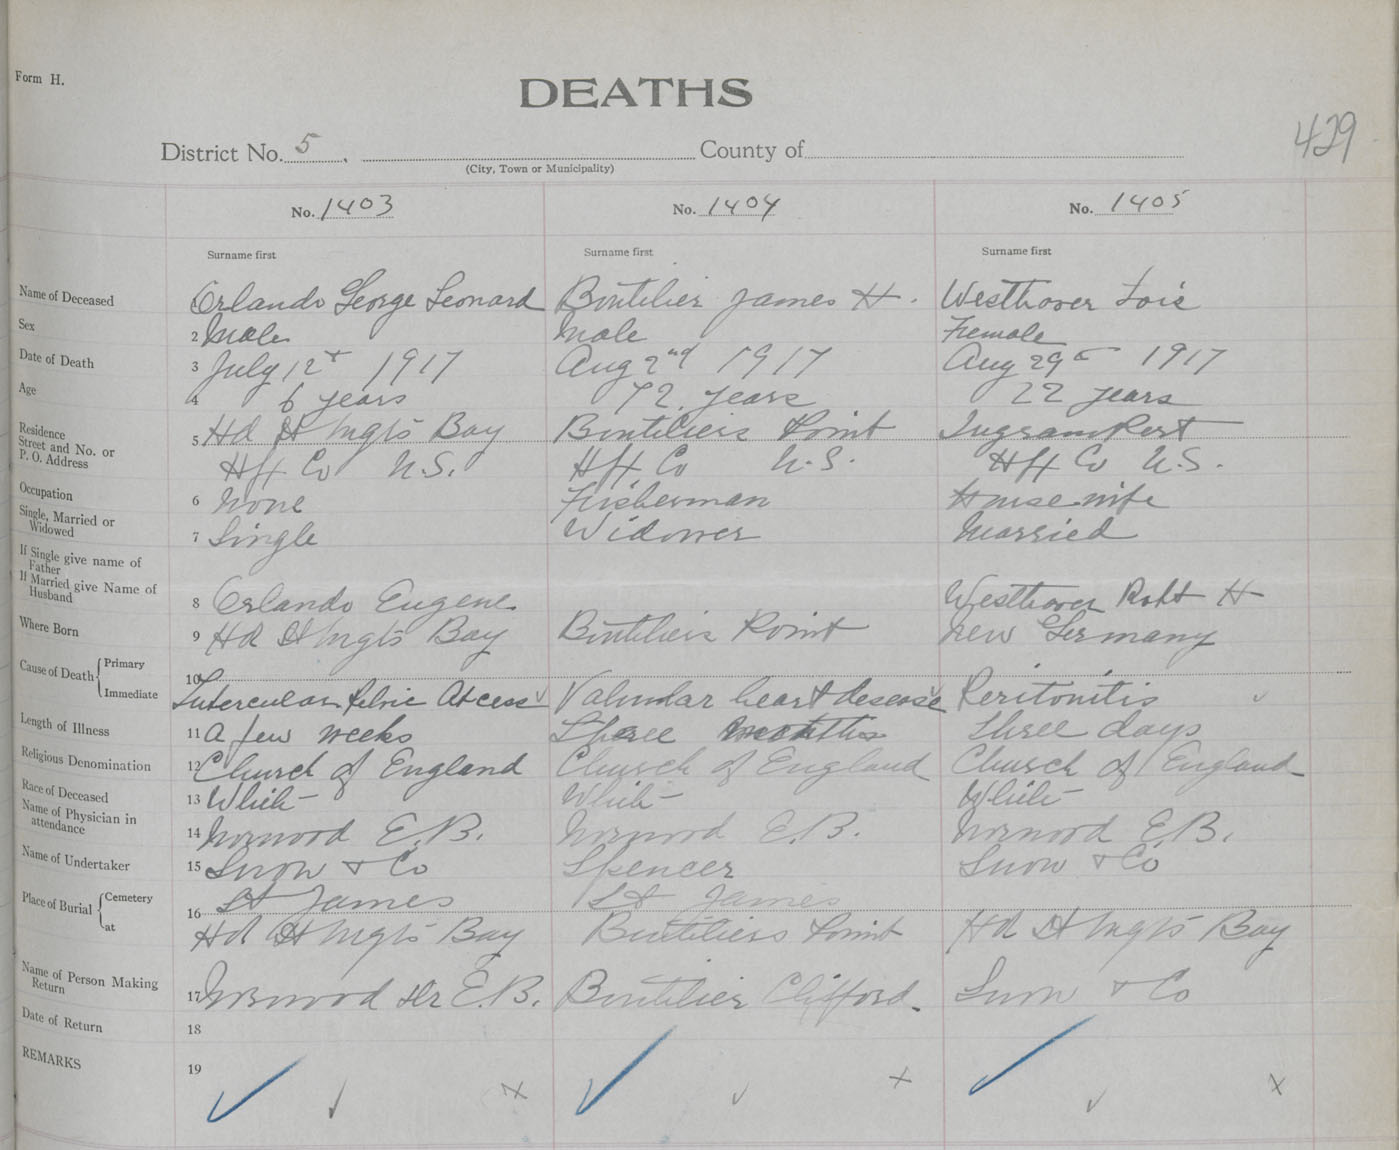 Form H.
DEATHS
429
District No. 5, County of
(City, Town or Municipality)
No. 1403 No. 1404 No. 1405
Surname first Surname first Surname first
Name of Deceased Orlando George Leonard Boutilier James H. Westhaver Lois
Sex 2 Male Male Female
Date of Death 3 July 12 1917 Aug 2nd 1917 Aug 29 1917
Age 4 6 years 72 years 22 years
Residence Street and No. or P. O. Address 5 Hd St Mgts Bay Boutiliers Point Ingram Port
Hfx Co N.S. Hfx Co N.S. Hfx Co N.S.
Occupation 6 None Fisherman Housewife
Single, Married or Widowed 7 Single Widower Married
If Single give name of Father
If Married give Name of Husband 8 Orlando Eugene Westhaver Robt H
Where Born 9 Hd St Mgts Bay Boutiliers Point New Germany
Cause of Death { Primary 10
Immediate Tubercular Pelvic Abcess Valvular heart desease Peritonitis
Length of Illness 11 A few weeks Three months Three days
Religious Denomination 12 Church of England Church of England Church of England
Race of Deceased 13 White White White
Name of Physician in attendance 14 Norwood E.B. Norwood E.B. Norwood E.B.
Name of Undertaker 15 Snow & Co Spencer Snow & Co
Place of Burial { Cemetery 16 St James St James
at Hd St Mgts Bay Boutiliers Point Hd St Mgts Bay
Name of Person Making Return 17 Norwood Dr E.B. Boutilier Clifford. Snow & Co
Date of Return 18
REMARKS 19